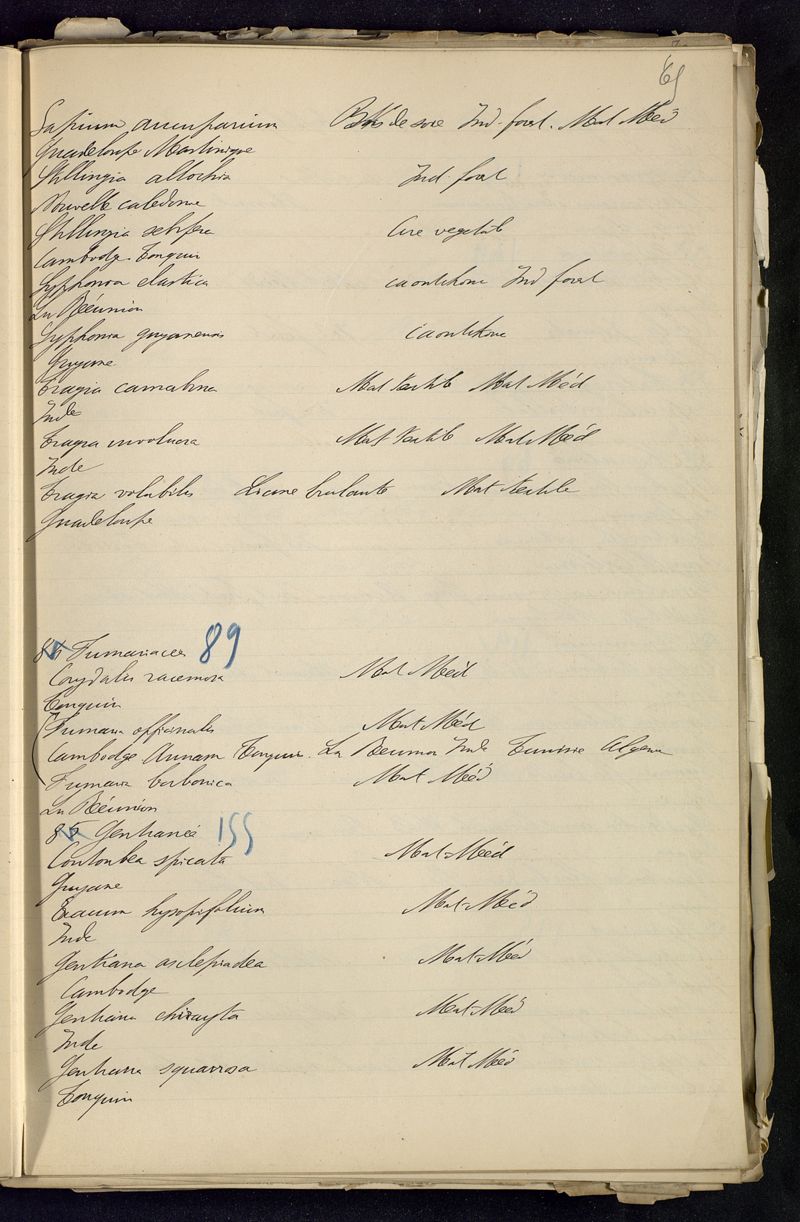 65
Sapium aucuparium Bois de soie Ind. forest. Mat Méd
Guadeloupe Martinique
Stillingia
Ind. forest
Nouvelle caledonie
Stillingia sebifera Cire vegetale
Cambodge Tonquin
Syphonia elastica caoutchouc Ind forest
La Réunion
Syphonia guyanensis caoutchouc
Guyane
Tragia cannabina Mat textile Mat Méd
Inde
Tragia involucra Mat textile Mat Méd
Inde
Tragia volubilis Liane brulante Mat textile
Guadeloupe
Fumariacées 89
Corydalis racemosa Mat Méd
Tonquin
Fumaria officinalis Mat Méd
Cambodge Annam Tonquin. La Reunion Inde Tunisie Algerie
Fumaria borbonica Mat Méd
La Réunion
Gentianée 155
Coutoubea spicata Mat-Méd
Guyane
Exacum hysopifolium Mat-Méd
Inde
Gentiana asclepiadea Mat Méd
Cambodge
Gentiana chirayta Mat Méd
Inde
Gentiana squarrosa Mat Méd
Tonquin